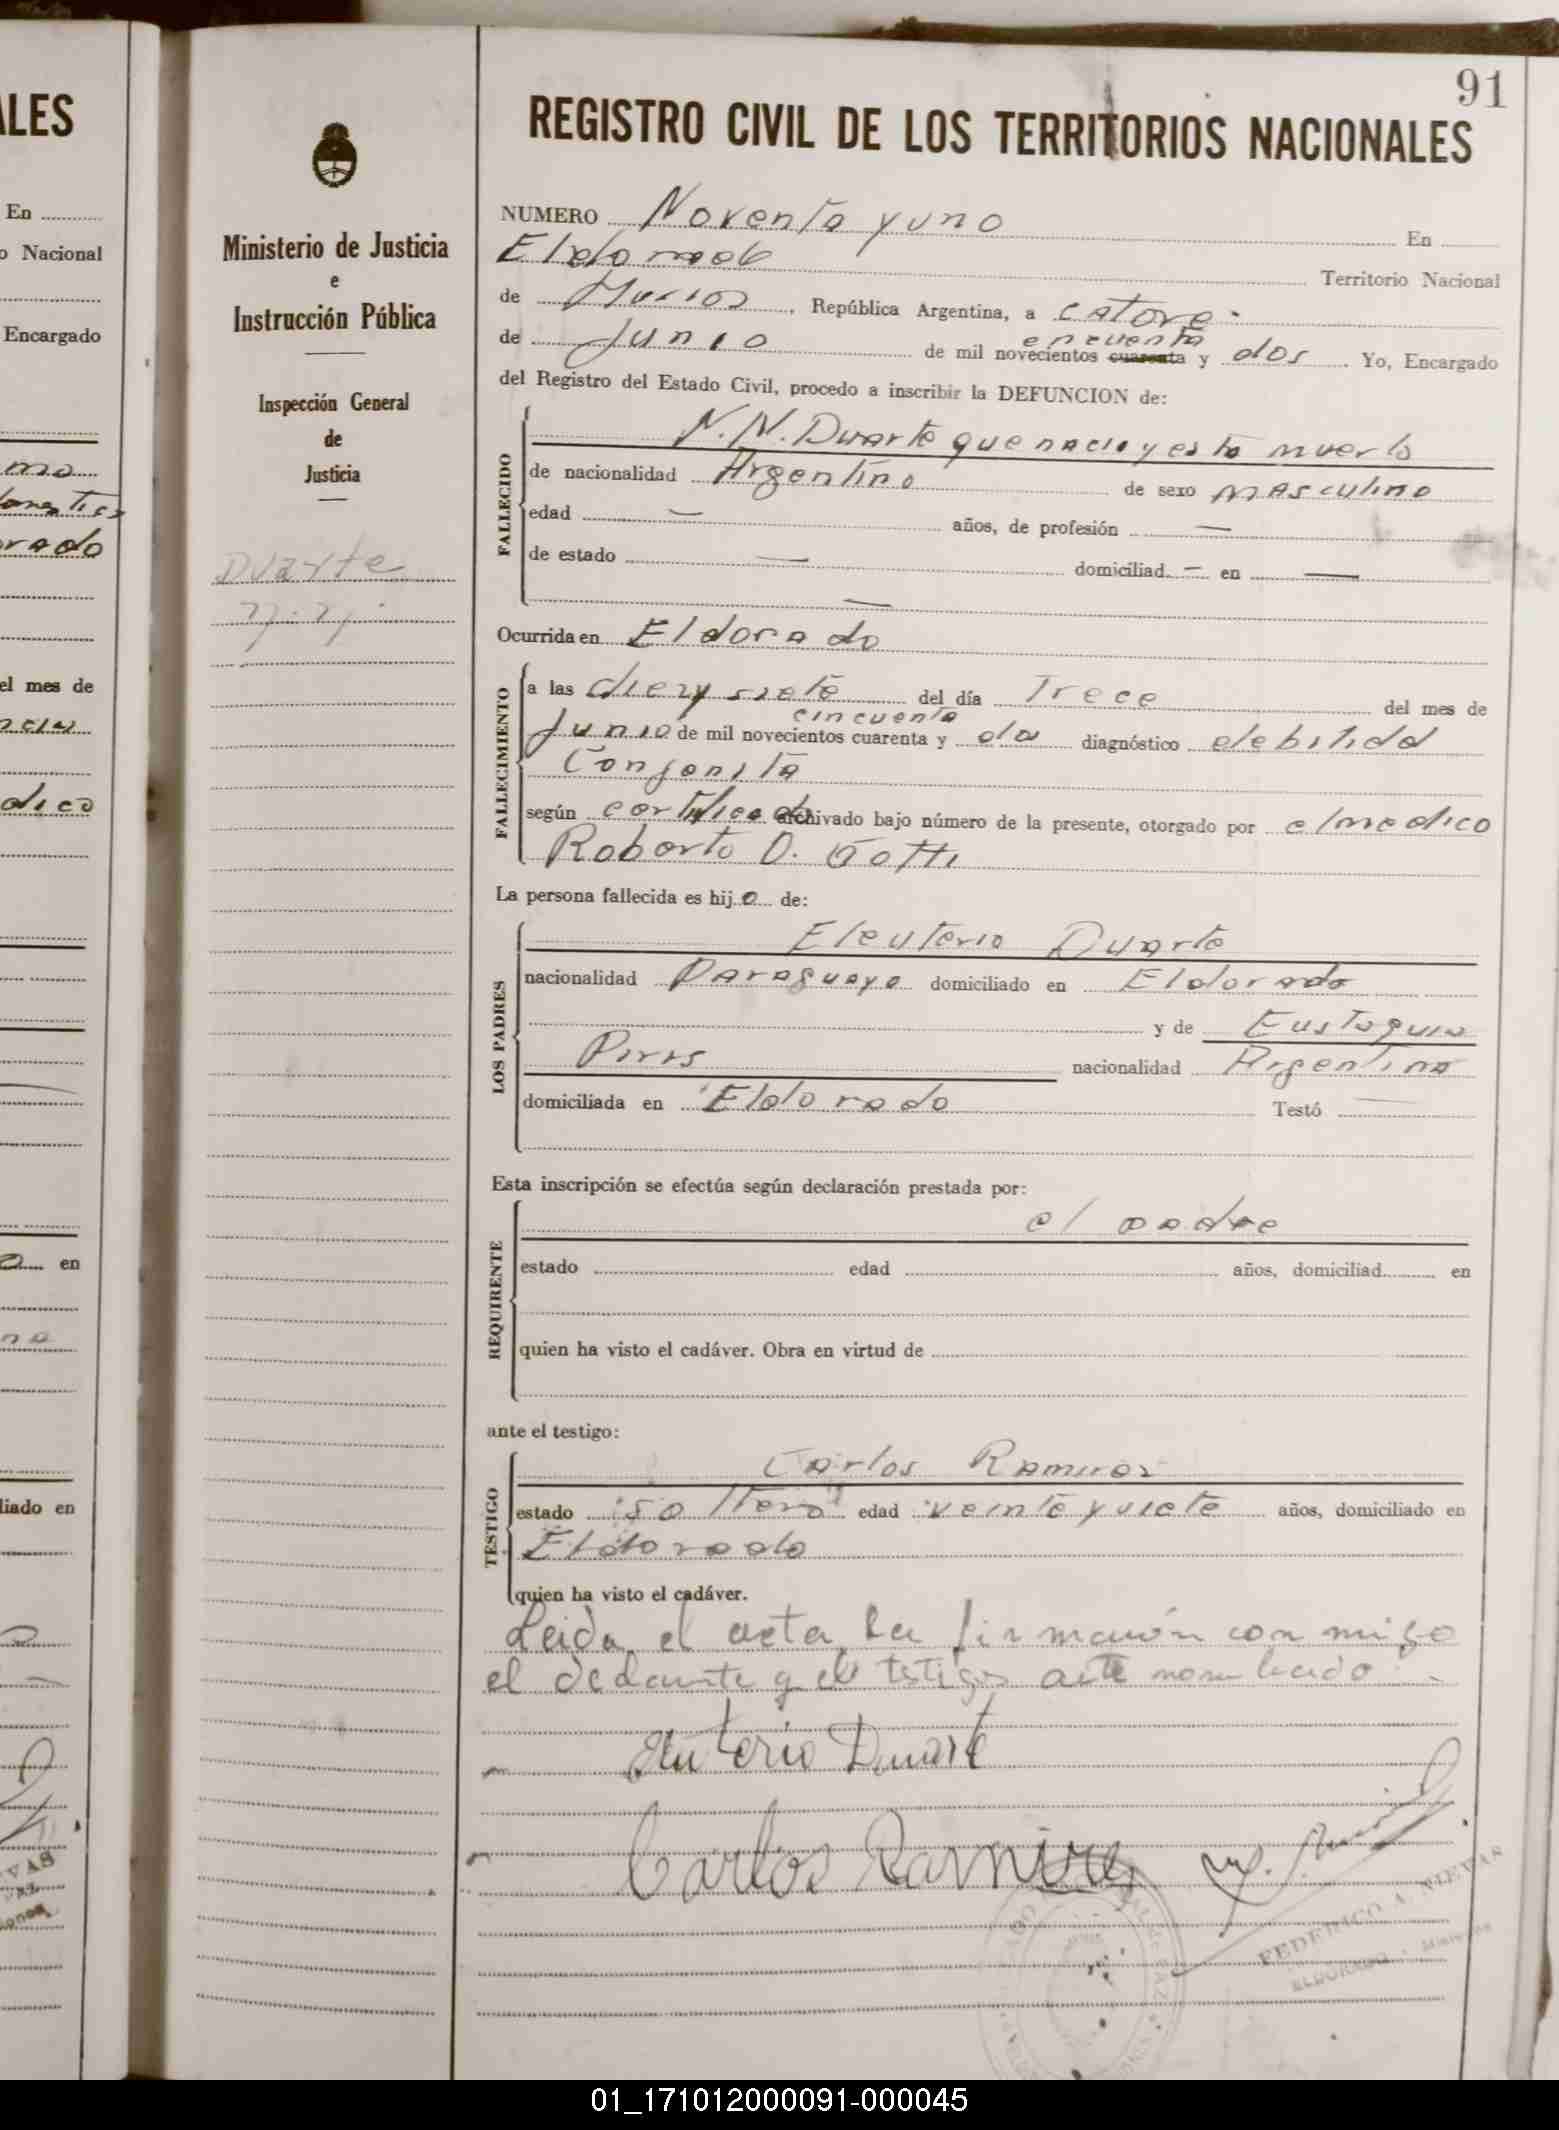 91
REGISTRO CIVIL DE LOS TERRITORIOS NACIONALES
Ministerio de Justicia
e
Instrucción Pública
Inspección General
de
Justicia
Duarte
n. n.
NUMERO Noventa y uno En
Eldorado Territorio Nacional
de Misiones, República Argentina, a catorce
de Junio de mil novecientos cuarenta y dos. Yo, Encargado
cincuenta
del Registro del Estado Civil, procedo a inscribir la DEFUNCION de:
FALLECIDO
N. N. Duarte que nacio y esta muerto
de nacionalidad Argentino de sexo masculino
edad — años, de profesión —
de estado — domiciliad — en —
—
Ocurrida en Eldorado
FALLECIMIENTO
a las diez y siete del día Trece del mes de
cincuenta
Junio de mil novecientos cuarenta y dos diagnóstico debilidad
Congenita
según certificado archivado bajo número de la presente, otorgado por el medico
Roberto O. Gotti
La persona fallecida es hijo de:
LOS PADRES
Eleuterio Duarte
nacionalidad Paraguayo domiciliado en Eldorado
y de Eustaquia
Piris nacionalidad Argentina
domiciliada en Eldorado Testó —
Esta inscripción se efectúa según declaración prestada por:
REQUIRENTE
el padre
estado edad años, domiciliad en
quien ha visto el cadáver. Obra en virtud de
ante el testigo:
TESTIGO
Carlos Ramirez
estado soltero edad veinte y siete años, domiciliado en
Eldorado
quien ha visto el cadáver.
Leida el acta la firmarón con migo
el declarante y el testigo ante nombrado
Eleuterio Duarte
Carlos Ramirez
FEDERICO A. NIEVAS
ELDORADO - Misiones
ALES
En
o Nacional
Encargado
el mes de
dico
en
liado en
01_171012000091-000045